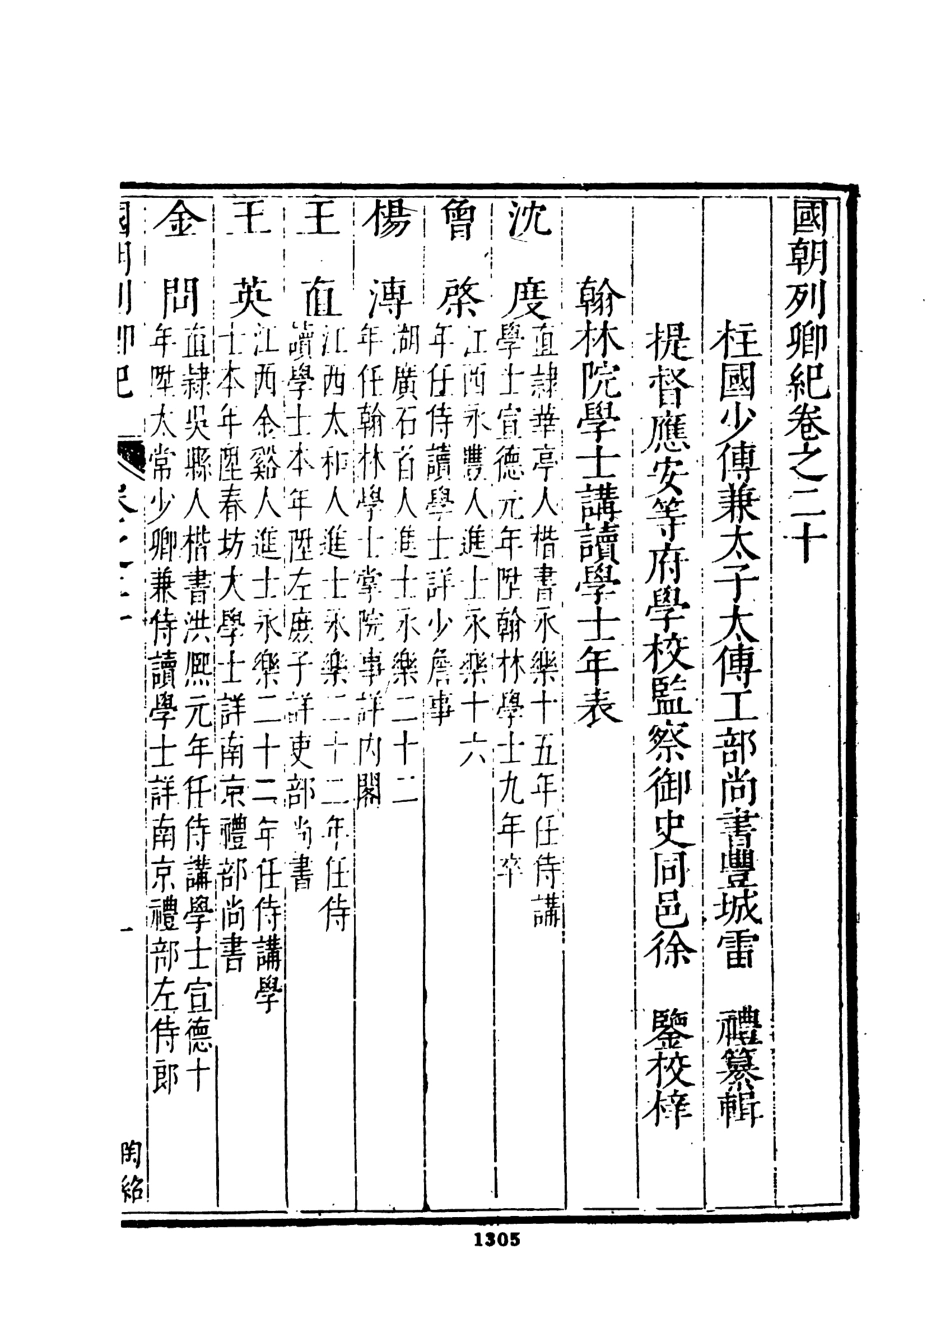 國朝列卿紀卷之二十
柱國少傅兼太子太傅工部尚書豐城雷 禮纂輯
提督應安等府學校監察御史同邑徐 鑒校梓
翰林院學士講讀學士年表
沈 度 直隷華亭人楷書永樂十五年任侍講
學士宣德元年陞翰林學士九年卒
曾 棨 江西永豐人進士永樂十六
年任侍讀學士詳少詹事
楊 溥 湖廣石首人進士永樂二十二
年任翰林學士掌院事詳内閣
王 直 江西太和人進士永樂二十二年任侍
讀學士本年陞左庶子詳吏部尚書
王 英 江西金谿人進士永樂二十二年任侍講學
士本年陞春坊大學士詳南京禮部尚書
金 問 直隷吳縣人楷書洪熈元年任侍講學士宣德十
年陞太常少卿兼侍讀學士詳南京禮部左侍郎
國朝列卿紀 卷之二十 一 陶銘
1305